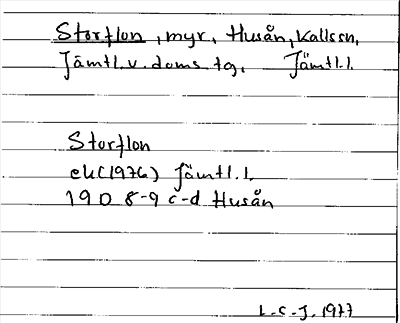 Storflon, myr, Husån, Kallssn,
Jämtl.v.doms.tg, Jämtl.l.
Storflon
ek(1976) Jämtl.l.
19D 8-9 c-d Husån
L-C-J. 1977